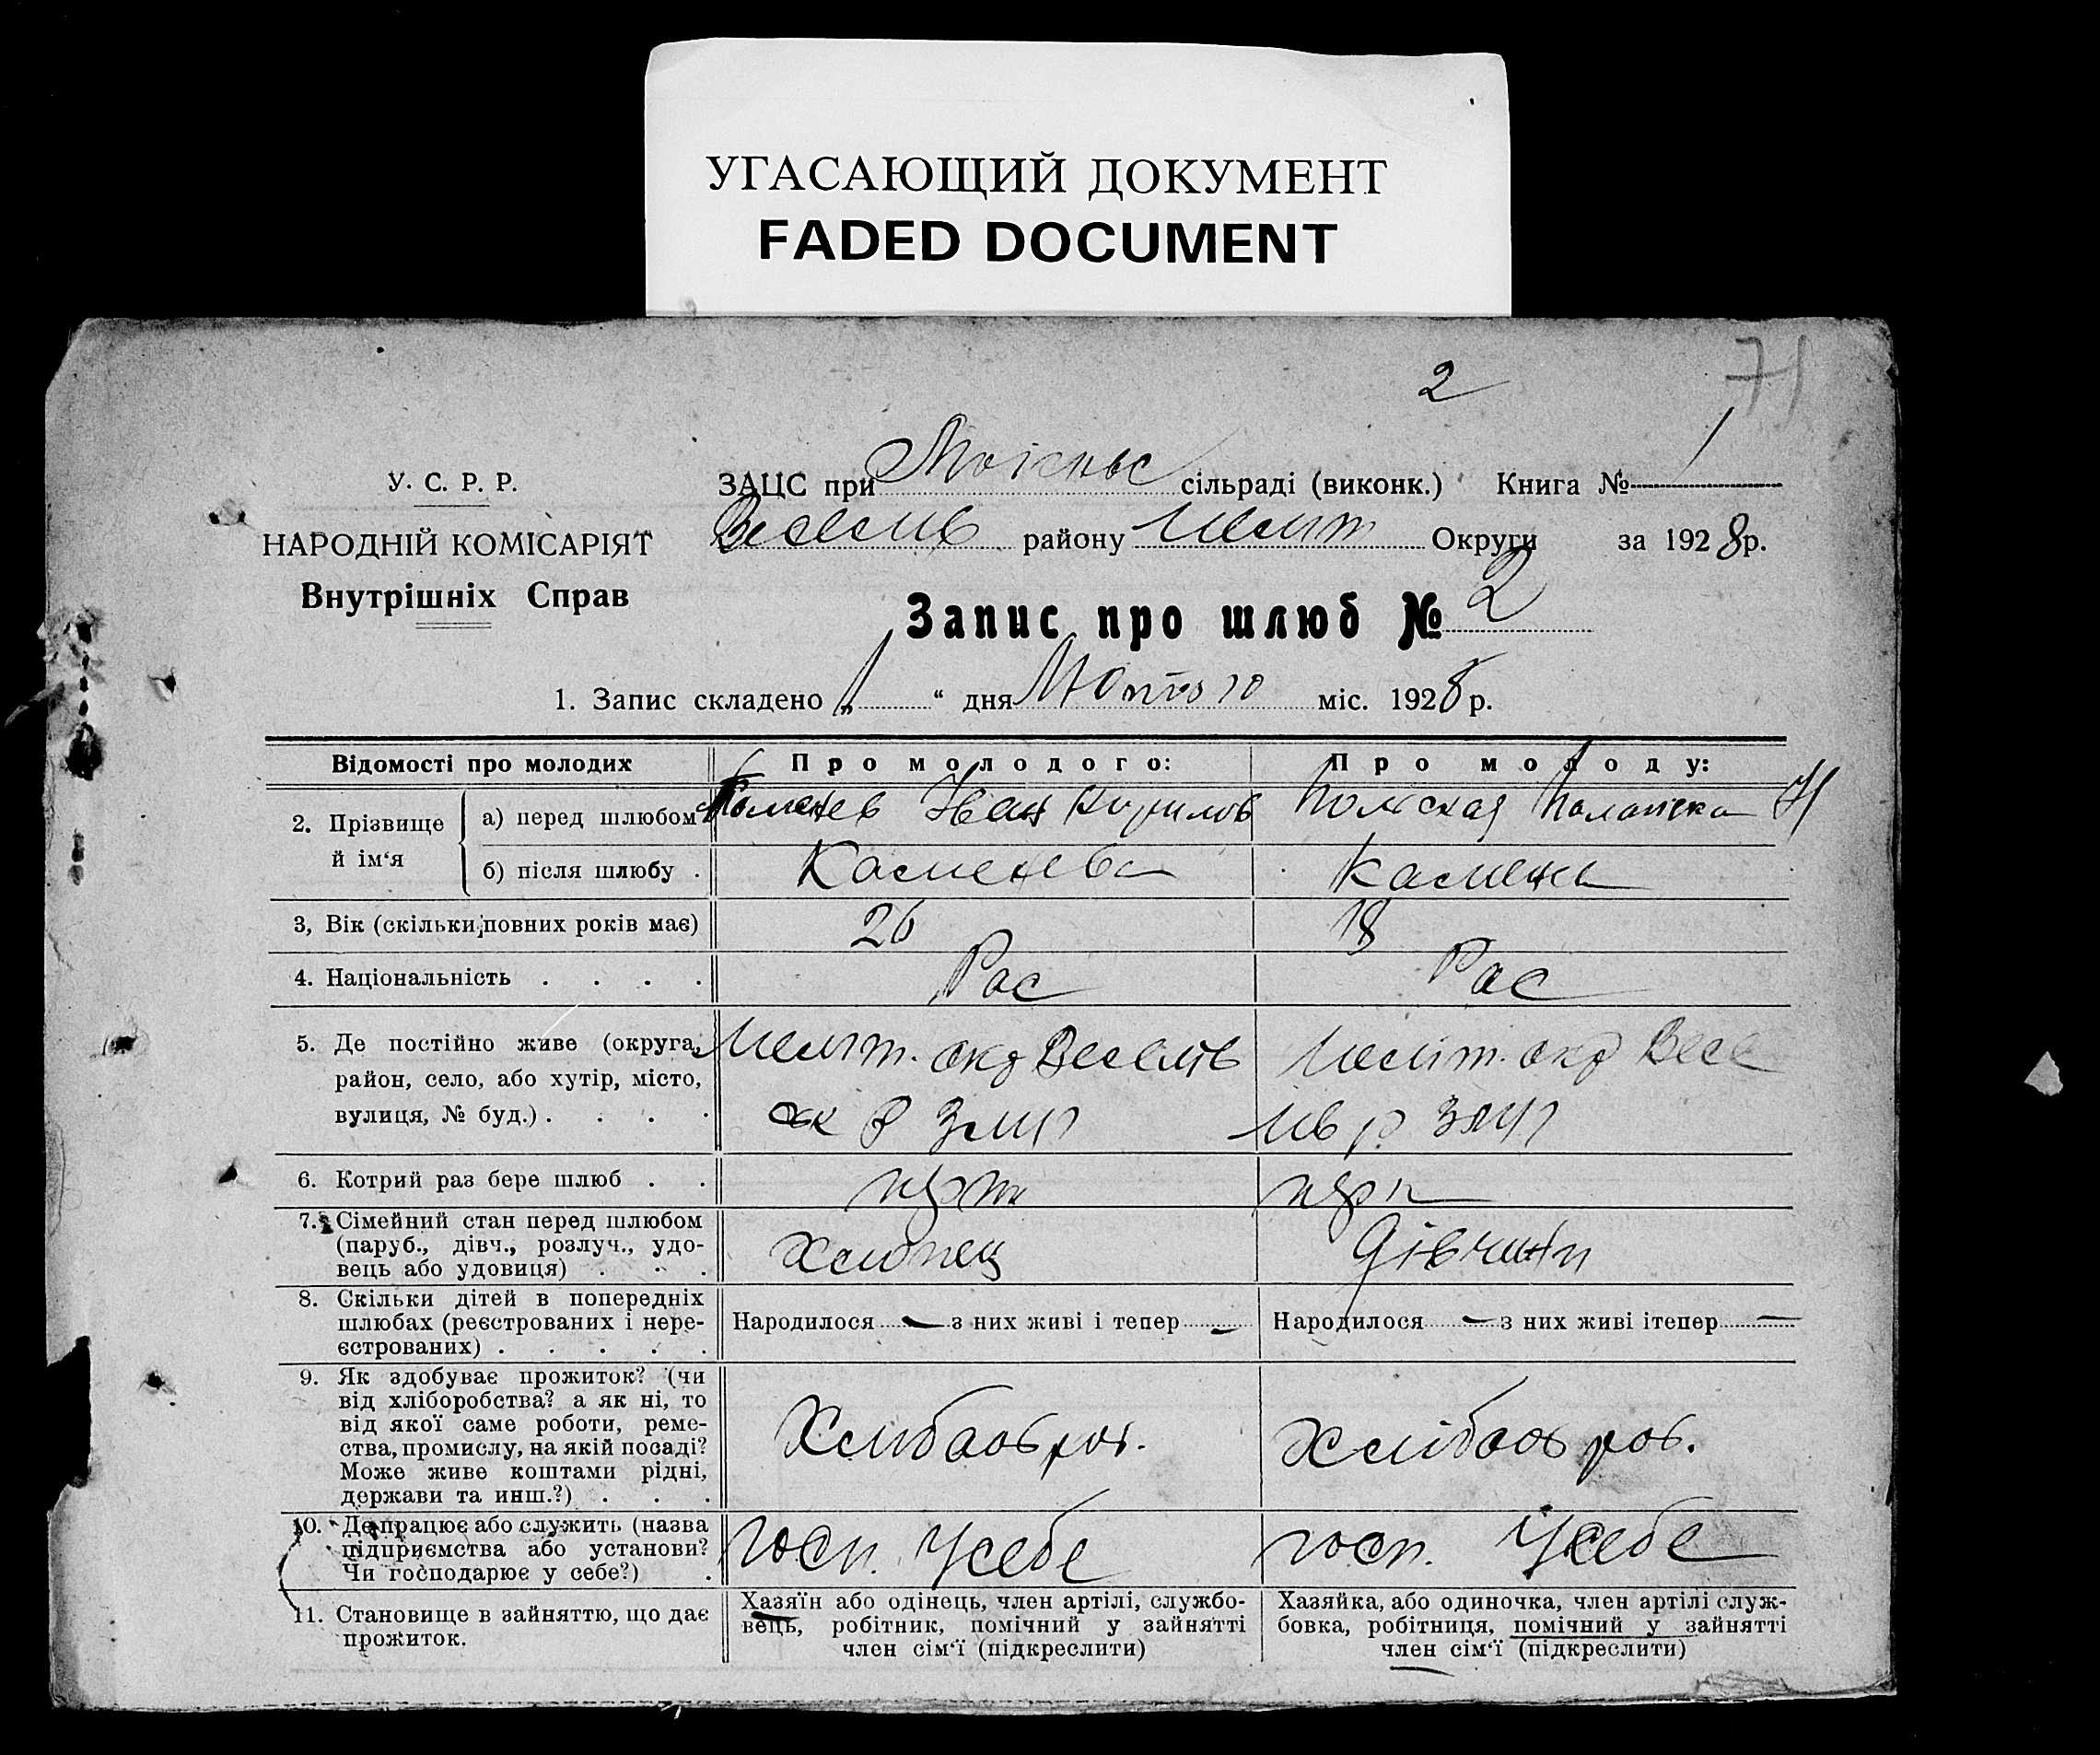 УГАСАЮЩИЙ ДОКУМЕНТ
FADED DOCUMENT
71
2
У. С. Р. Р.
НАРОДНІЙ КОМІСАРІЯТ
Внутрішніх Справ
ЗАЦС при сільраді (виконк.) Книга № 1
Веселів району Меліт Округи за 1928р.
Запис про шлюб № 2
1. Запис складено „1“ дня Лютого міс. 1928 р.
Відомості про молодих
Про молодого:
Про молоду:
2. Прізвище й ім‘я
а) перед шлюбом
Каменев Іван Кирилов
Полская
б) після шлюбу .
Каменева
3, Вік (скільки повних років має)
26
18
4. Національність . . . .
Рос
Рос
5. Де постійно живе (округа,
район, село, або хутір, місто,
вулиця, № буд.) . . . .
Меліт. окр Веселів
Меліт. окр Весе
лів р.
6. Котрий раз бере шлюб . .
7. Сімейний стан перед шлюбом
(паруб., дівч., розлуч., удо-
вець або удовиця) . . .
Хлопец
Дівчина
8. Скільки дітей в попередніх
шлюбах (реєстрованих і нере-
єстрованих) . . . . .
Народилося — з них живі і тепер —
Народилося — з них живі ітепер —
9. Як здобуває прожиток? (чи
від хліборобства? а як ні, то
від якої саме роботи, реме-
ства, промислу, на якій посаді?
Може живе коштами рідні,
держави та инш.?) . . .
10. Де працює або служить (назва
підприємства або установи?
Чи господарює у себе?) .
госп. Усебе
госп. Усебе
11. Становище в зайняттю, що дає
прожиток.
Хазяїн або одінець, член артілі, службо-
вець, робітник, помічний у зайнятті
член сім‘ї (підкреслити)
Хазяйка, або одиночка, член артілі служ-
бовка, робітниця, помічний у зайнятті
член сім‘ї (підкреслити)